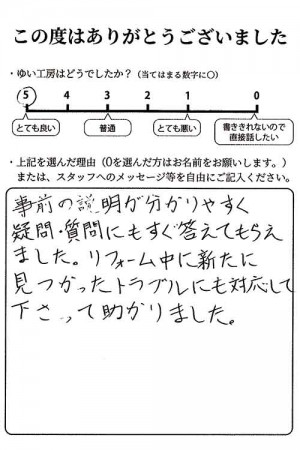 この度はありがとうございました
・ゆい工房はどうでしたか？（当てはまる数字に○）
5 4 3 2 1 0
とても良い 普通 とても悪い 書ききれないので
直接話したい
・上記を選んだ理由（0を選んだ方はお名前をお願いします。）
または、スタッフへのメッセージ等を自由にご記入ください。
事前の説明が分かりやすく
疑問・質問にもすぐ答えてもらえ
ました。リフォーム中に新たに
見つかったトラブルにも対応して
下さって助かりました。